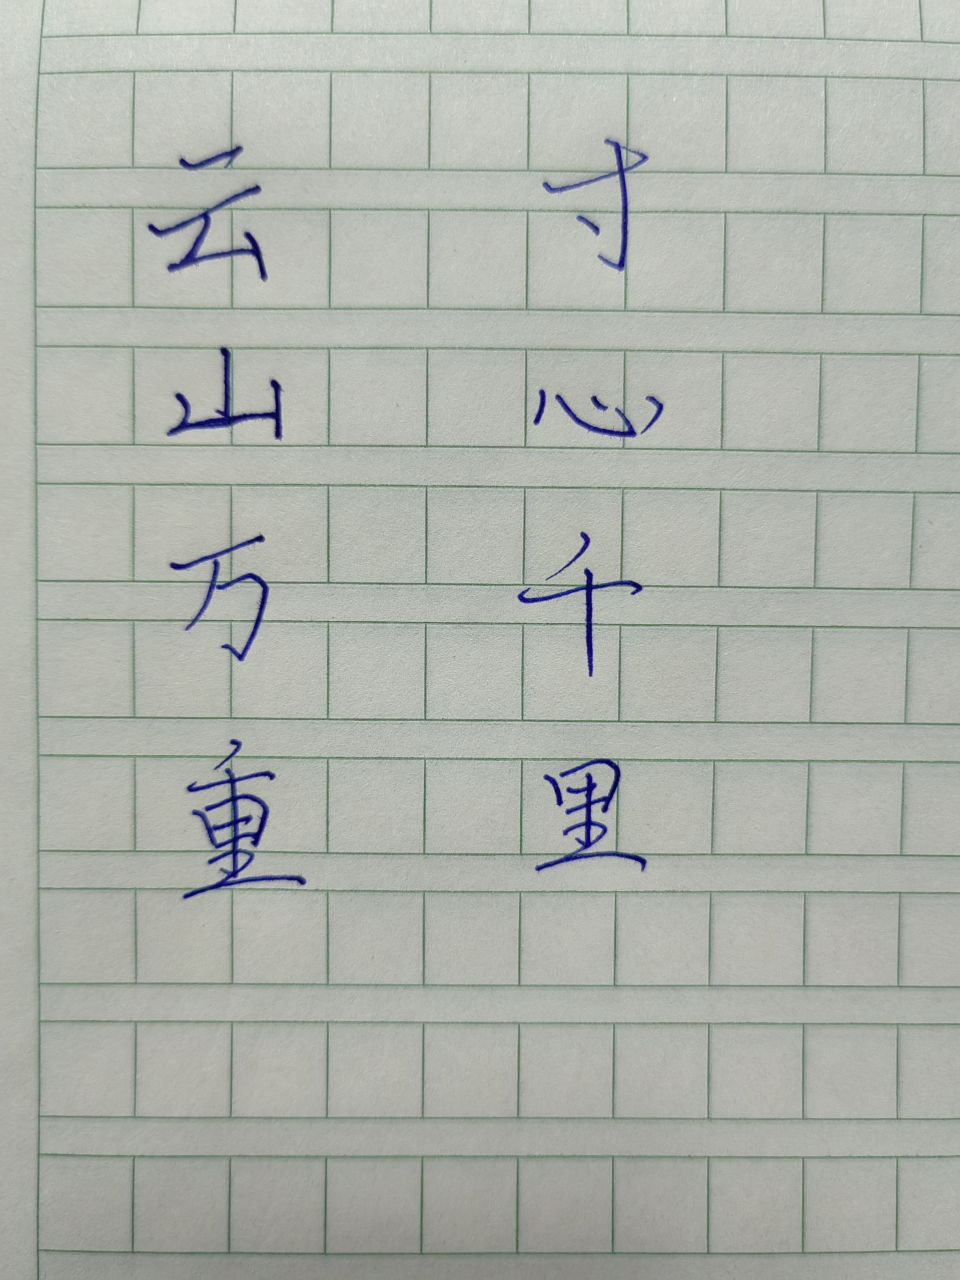 云山万重
寸心千里